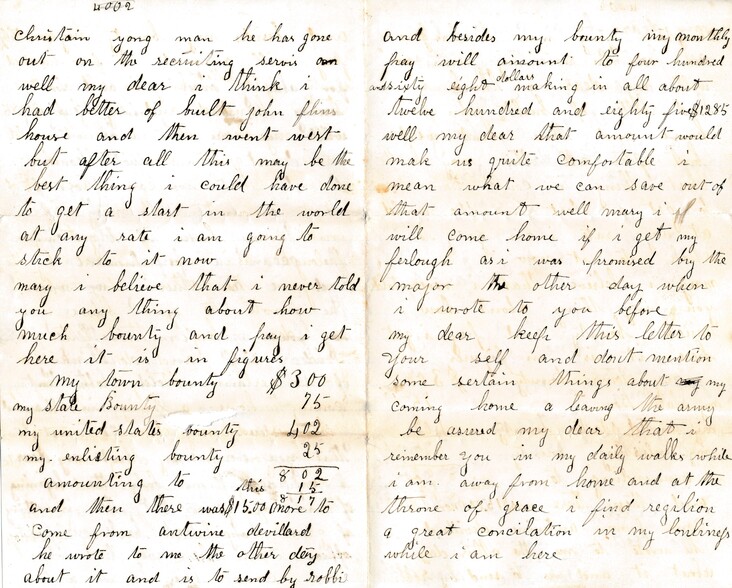 4002
christain yong man he has gone
out on the recruiting servis on
well my dear i think i
had better of built john flins
house and then went west
but after all this may be the
best thing i could have done
to get a start in the world
at any rate i am going to
stick to it now
mary i believe that i never told
you any thing about how
much bounty and pay i get
here it is in figures
my town bounty $300
my state Bounty 75
my united states bounty 402
my enlisting bounty 25
amounting to 802
this 15
817
and then there was $15.00 more to
come from antwine devillard
he wrote to me the other dey
about it and is to send by robbi
and besides my bounty my monthly
pay will amount to four hundred
and sixty eight dollars making in all about
twelve hundred and eighty five $1285
well my dear that amount would
make us quite comfortable i
mean what we can save out of
that amount well mary i
will come home if i get my
ferlough as i was promised by the
major the other day when
i wrote to you before
my dear keep this letter to
your self and dont mention
some sertain things about my my
coming home a leaving the army
be assered my dear that i
remember you in my daily walks while
i am away from home and at the
throne of grace i find regilion
a great concilation in my lonliness
while i am here